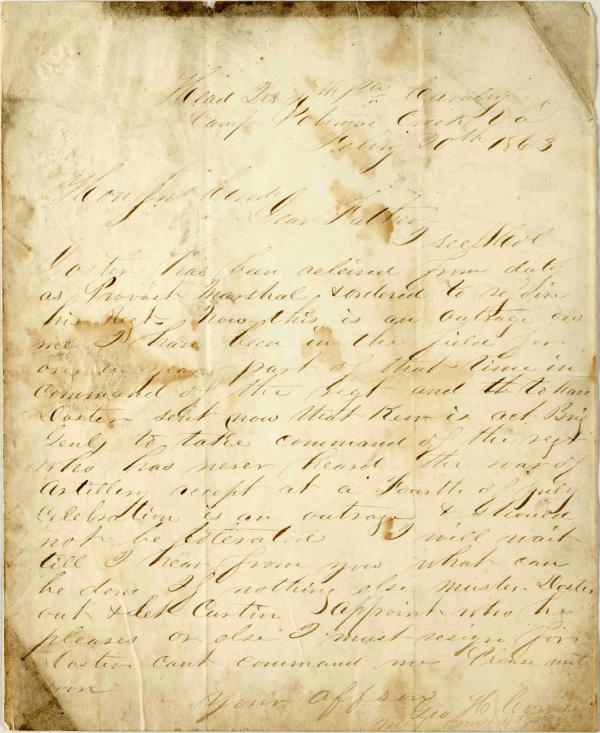 Head Qrs 4th Pa Cavalry
Camp Potomac Creek Va
Feby 20th 1863
Hon Jno Covode
Dear Father
I see that
Doster has been relieved from duty
as Provost Marshal & ordered to rejoin
his Regt. Now this is an outrage on
me I have been in the field for
over a year part of that time in
command of the regt and to have
Doster sent now that Kerr is act Brig
Genl to take command of the regt
who has never heard the roar of
Artillery except at a Fourth of July
Celebration is an outrage & should
not be tolerated I will wait
till I hear from you what can
be done If nothing else muster Doster
out & let Curtin appoint who he
pleases or else I must resign for
Doster cant command me Please write
soon
Your aff son
Geo H Covode